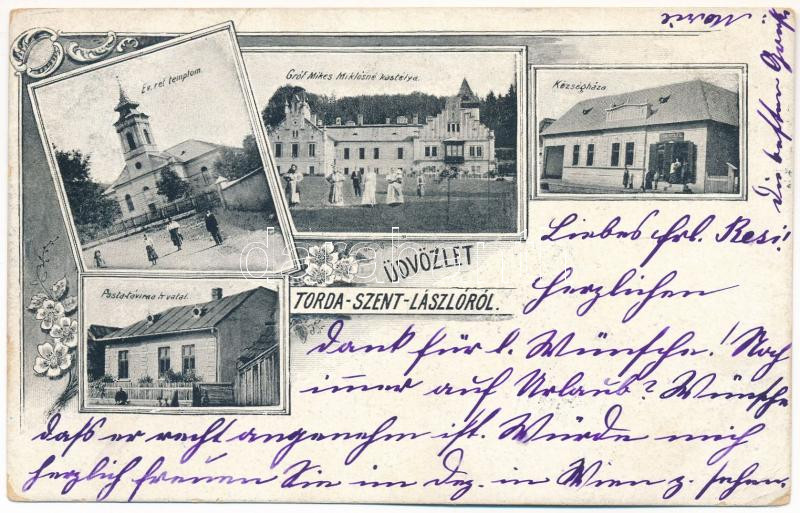 Ev. ref. templom.
Gróf Mikes Miklósné kastélya.
Községháza
Posta-távirda hivatal.
ÜDVÖZLET
TORDA-SZENT-LÁSZLÓRÓL.
Liebes frl. Resi!
Herzlichen
Dank für l. Wünsche! Noch
immer auf Urlaub? Wünsche
daß er recht angenehm ist. Würde mich
herzlich freuen Sie im Dez. in Wien z. sehen.
Die besten
darabanth.com